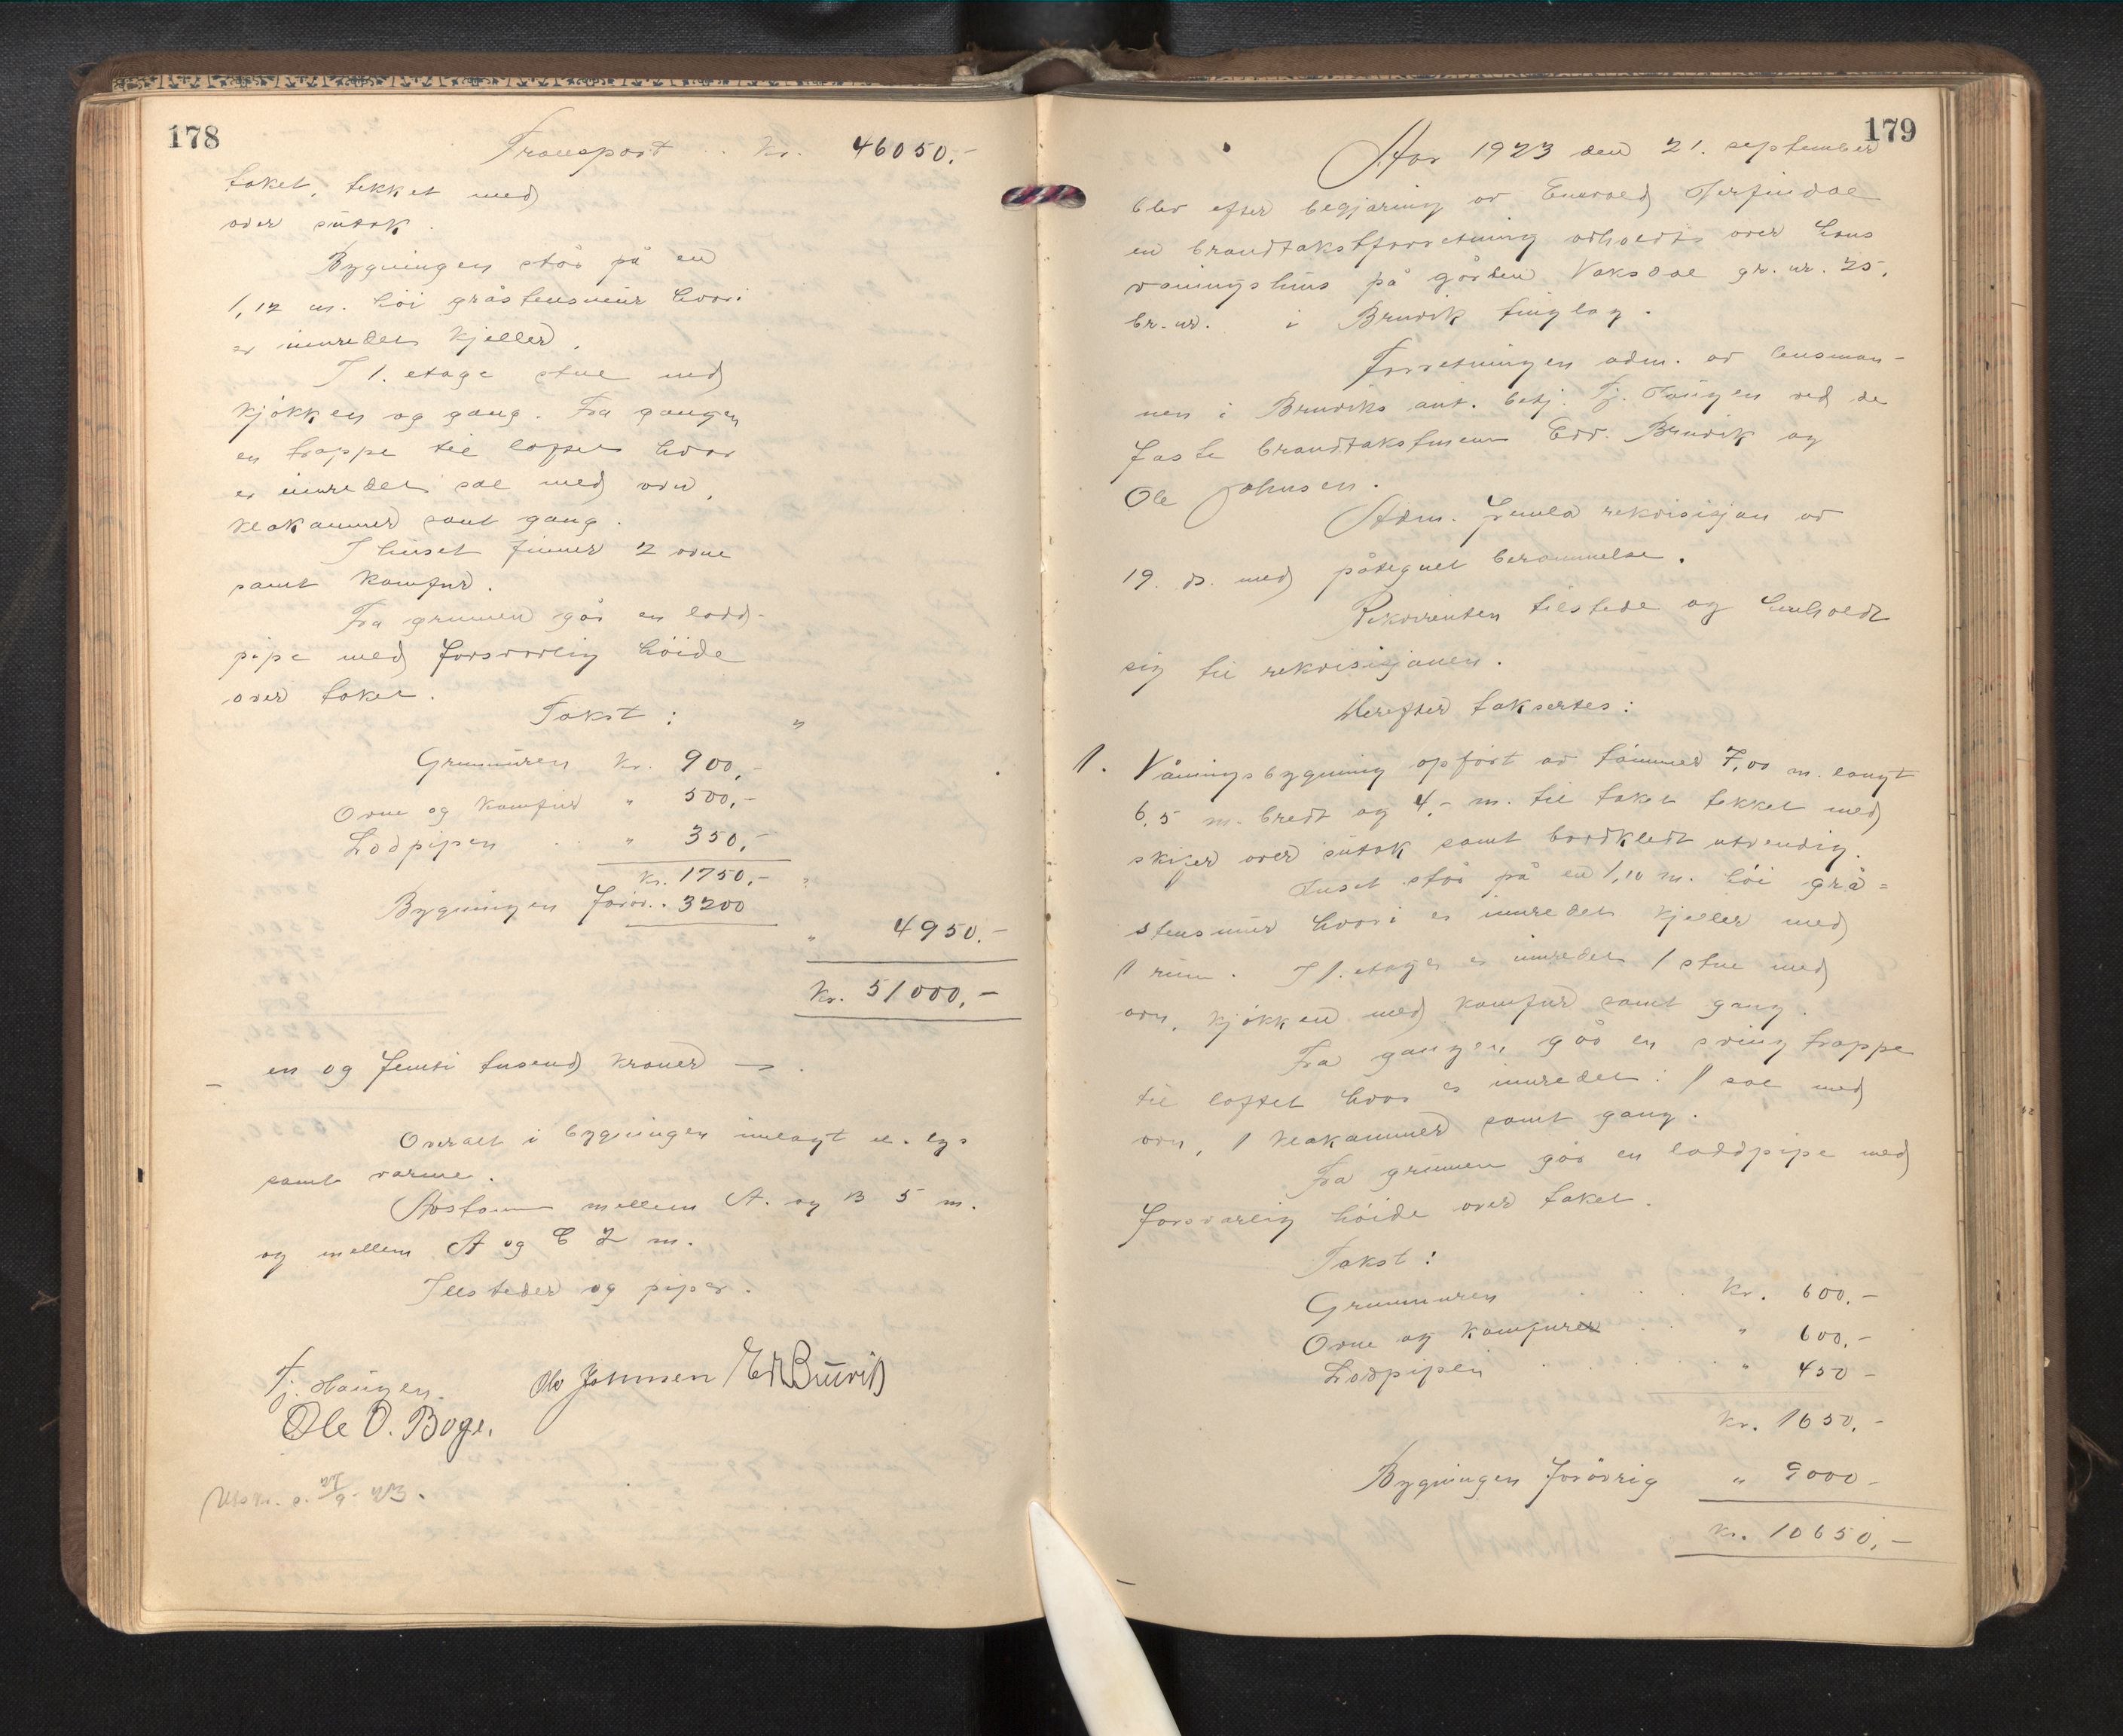 178
Transport . . Kr. 46050.-
taket, tekket med
over sutak.
Bygningen står på en
1,12 m. høi gråstensmur hvori
er innredet kjeller.
I 1. etage stue med
kjøkken og gang. Fra gangen
en trappe til loftet hvor
er innredet sal med ovn,
klækammer samt gang.
I huset finnes 2 ovne
samt komfur.
Fra grunnen går en lodd-
pipe med forsvarlig høide
over taket.
Takst : "
Grunnmuren Kr. 900,-
Ovne og komfur " 500,-
Lodpipen . . " 350,-
Kr. 1750,- "
Bygningen forøv.. 3200
" 4950.-
Kr. 51000,-
en og femti tusend kroner —
Overalt i bygningen innlagt el. lys
samt varme.
Avstann mellem A. og B 5 m.
og mellem A og C 2 m.
Illsteder og piper.
Tj. Haugen. Ole Johnsen Ed Bruvik
Ole O. Boge.
179
Aar 1923 den 21. september
blev efter begjæring av Terfindal
en brandtakstforretning avholdt over hans
våningshus på gården Vaksdal gr. nr. 25,
br. nr. i Bruvik tinglag.
Forretningen adm. av lensman-
nen i Bruviks aut. betj. Tj. Haugen med de
faste brandtakstmenn Edv. Bruvik og
Ole Johnsen.
Adm. fremla rekvisisjon av
19. ds. med påtegnet berammelse.
Rekvirenten tilstede og henholdt
sig til rekvisisjonen.
Herefter taksertes:
1. Våningsbygning opført av tømmer 7,00 m. langt
6,5 m. bredt og 4,- m. til taket tekket med
skifer over sutak samt bordkledt utvendig.
Huset står på en 1,10 m. høi grå=
stensmur hvori er innredet kjeller med
1 rum. I 1. etage er innredet 1 stue med
ovn, kjøkken med komfur samt gang.
Fra gangen går en sving trappe
til loftet hvor er innredet: 1 sal med
ovn, 1 klækammer samt gang.
Fra grunnen går en loddpipe med
forsvarlig høide over taket.
Takst :
Grunnmuren . . . Kr. 600.-
Ovne og komfurer . . " 600,-
Lodpipen . . . . . " 450-
Kr. 1650,-
Bygningen forøvrig " 9000-
Kr. 10650,-